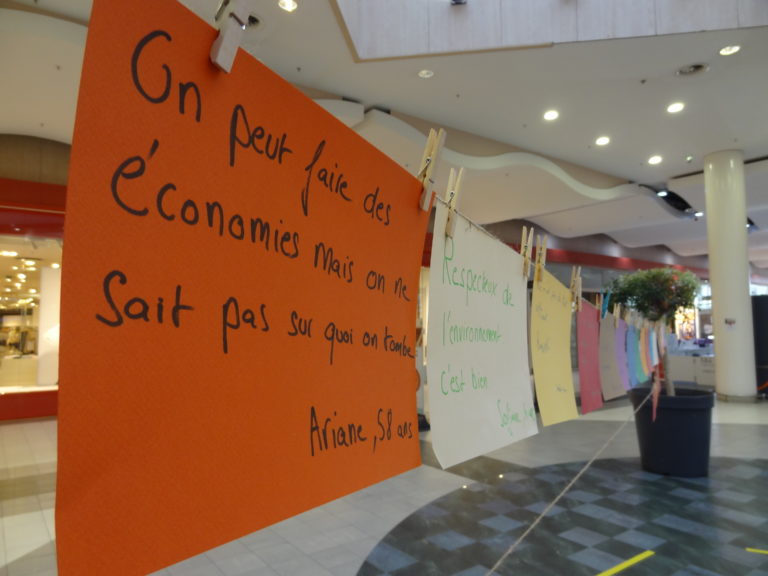 On peut faire des
économies mais on ne
sait pas sur quoi on tombe
Ariane, 58 ans
Respecteux de
l'environnement
c'est bien